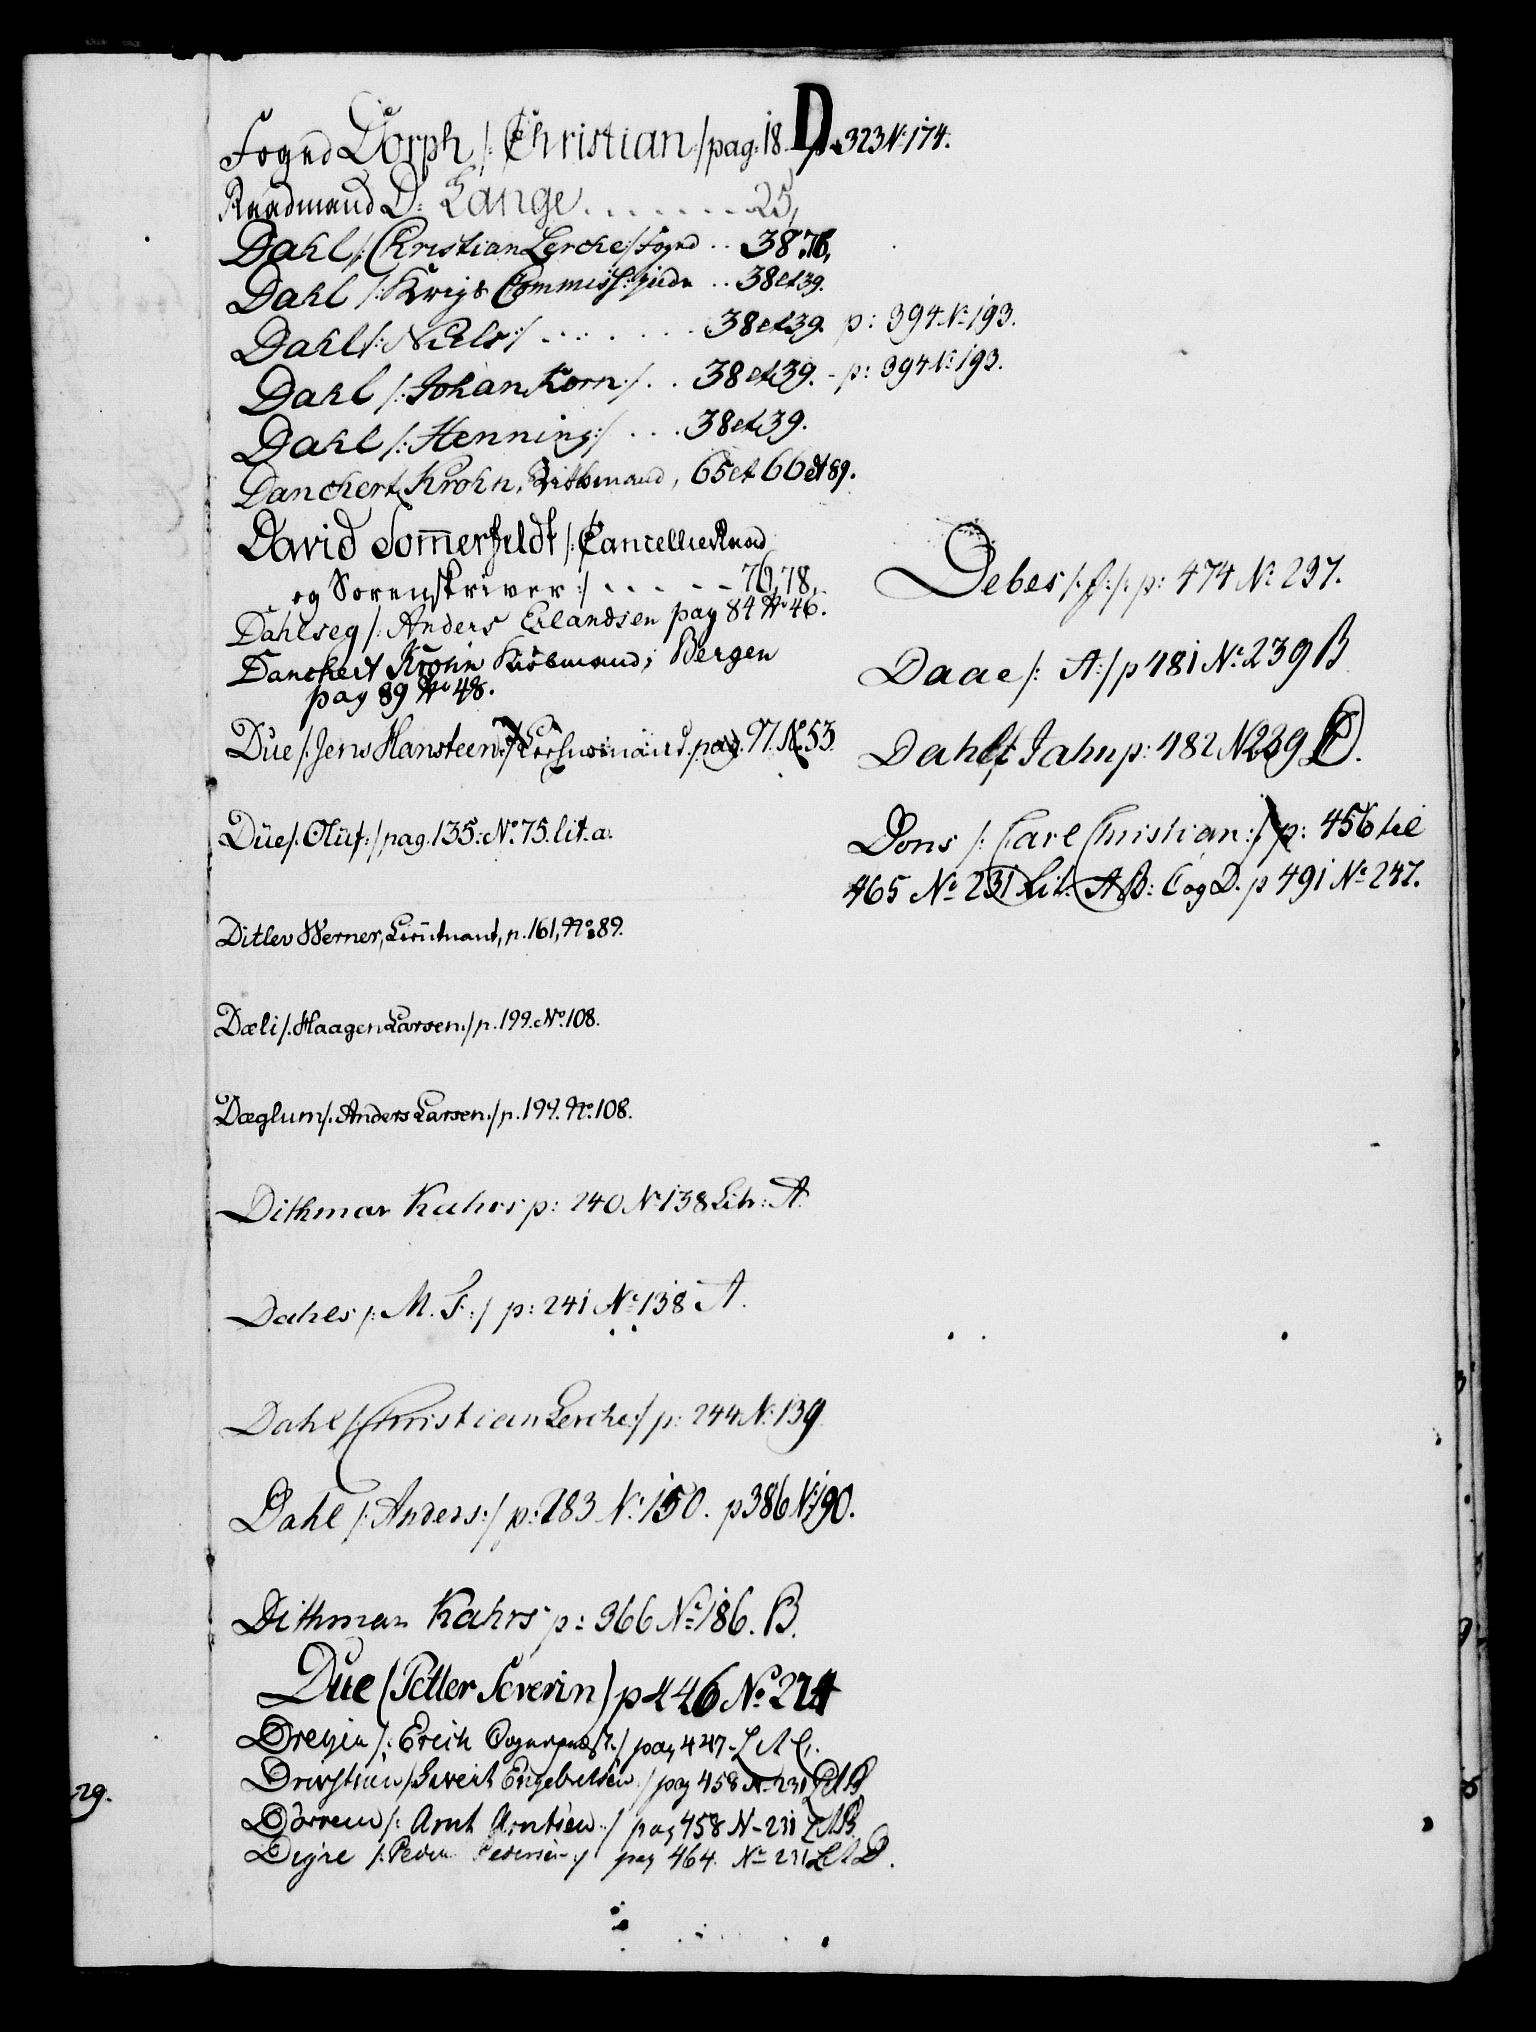 D
Fogud Dorph /: Christian /pag: 18. p. 323 No 174.
Raadmand D: Lange . . . . . . . 25,
Dahl /: Christian Lerche /: fogud . . 38. 76,
Dahl /: Krigs Commiss: . . 38 et 39.
Dahl /: Niels :/ . . . . . . 38 et 39. p: 394 No 193.
Dahl /: Johan Korn :/ . . 38 et 39. - p: 394 No 193.
Dahl /: Henning :/ . . . 38 et 39.
Danchert Krohn, Kiöbmand, 65 et 66 et 89.
David Som̅erfeldt /: Cancellie Raad
og Sorenskriver :/ . . . . . 76, 78,
Dahlseg /: Anders Erlandsen pag 84 No 46.
Danchert Krohn Kiöbmand; Bergen
pag 89 No 48.
Due /: Jens Hansteen :/ pag. 97. No. 53.
Düe /: Olüf: / pag. 135: No. 75. lit. a.
Ditlev Werner, Lieutnant, p. 161, No. 89.
Dæli /: Haagen Larsen :/ p. 199. No. 108.
Dæglum /: Anders Larsen :/ p. 199. No. 108.
Dithmar Kahrs p: 240 No 138 Litr: A.
Dahls /: M. S: / p: 241 No 138 A.
Dahl /: Christian Lerche :/ p: 244 No 139
Dahl /: Anders :/ p: 283 No 150. p 386 No 190.
Dithmar Kahrs p: 366 No 186. B.
Due (Petter Severin) p 446 No. 224
/: Erich / pag 447 - L A C.
/ Engebretsen :/ pag 458 N- 231 L A B
Dörrem /: Arnt Arntsen :/ pag 458 N- 231 L A B.
Digre /: Peder Pedersen :/ pag 464. No 231 L A D.
Debes /: J: /: p: 474 No 237.
Daae /: A: / p 481 No. 239 B
Dahl Jahn p: 482 No 239 D.
Dons /: Carl Christian: / p: 456 til
465 No 231 Lit: A B: C og D. p 491 No 247.
29.